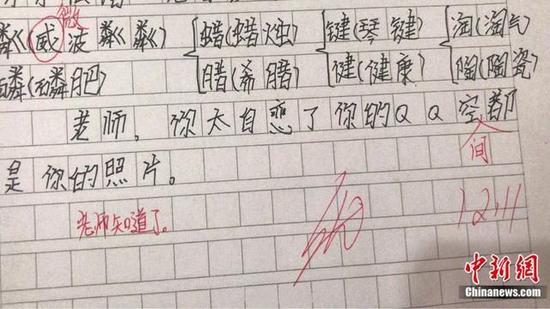 微
粼(威波粼粼) 蜡(蜡烛) 键(琴键) 淘(淘气)
磷(磷肥) 腊(希腊) 健(健康) 陶(陶瓷)
老师，你太自恋了你的QQ空都
间
是你的照片。
老师知道了。
12.11
中新网
Chinanews.com